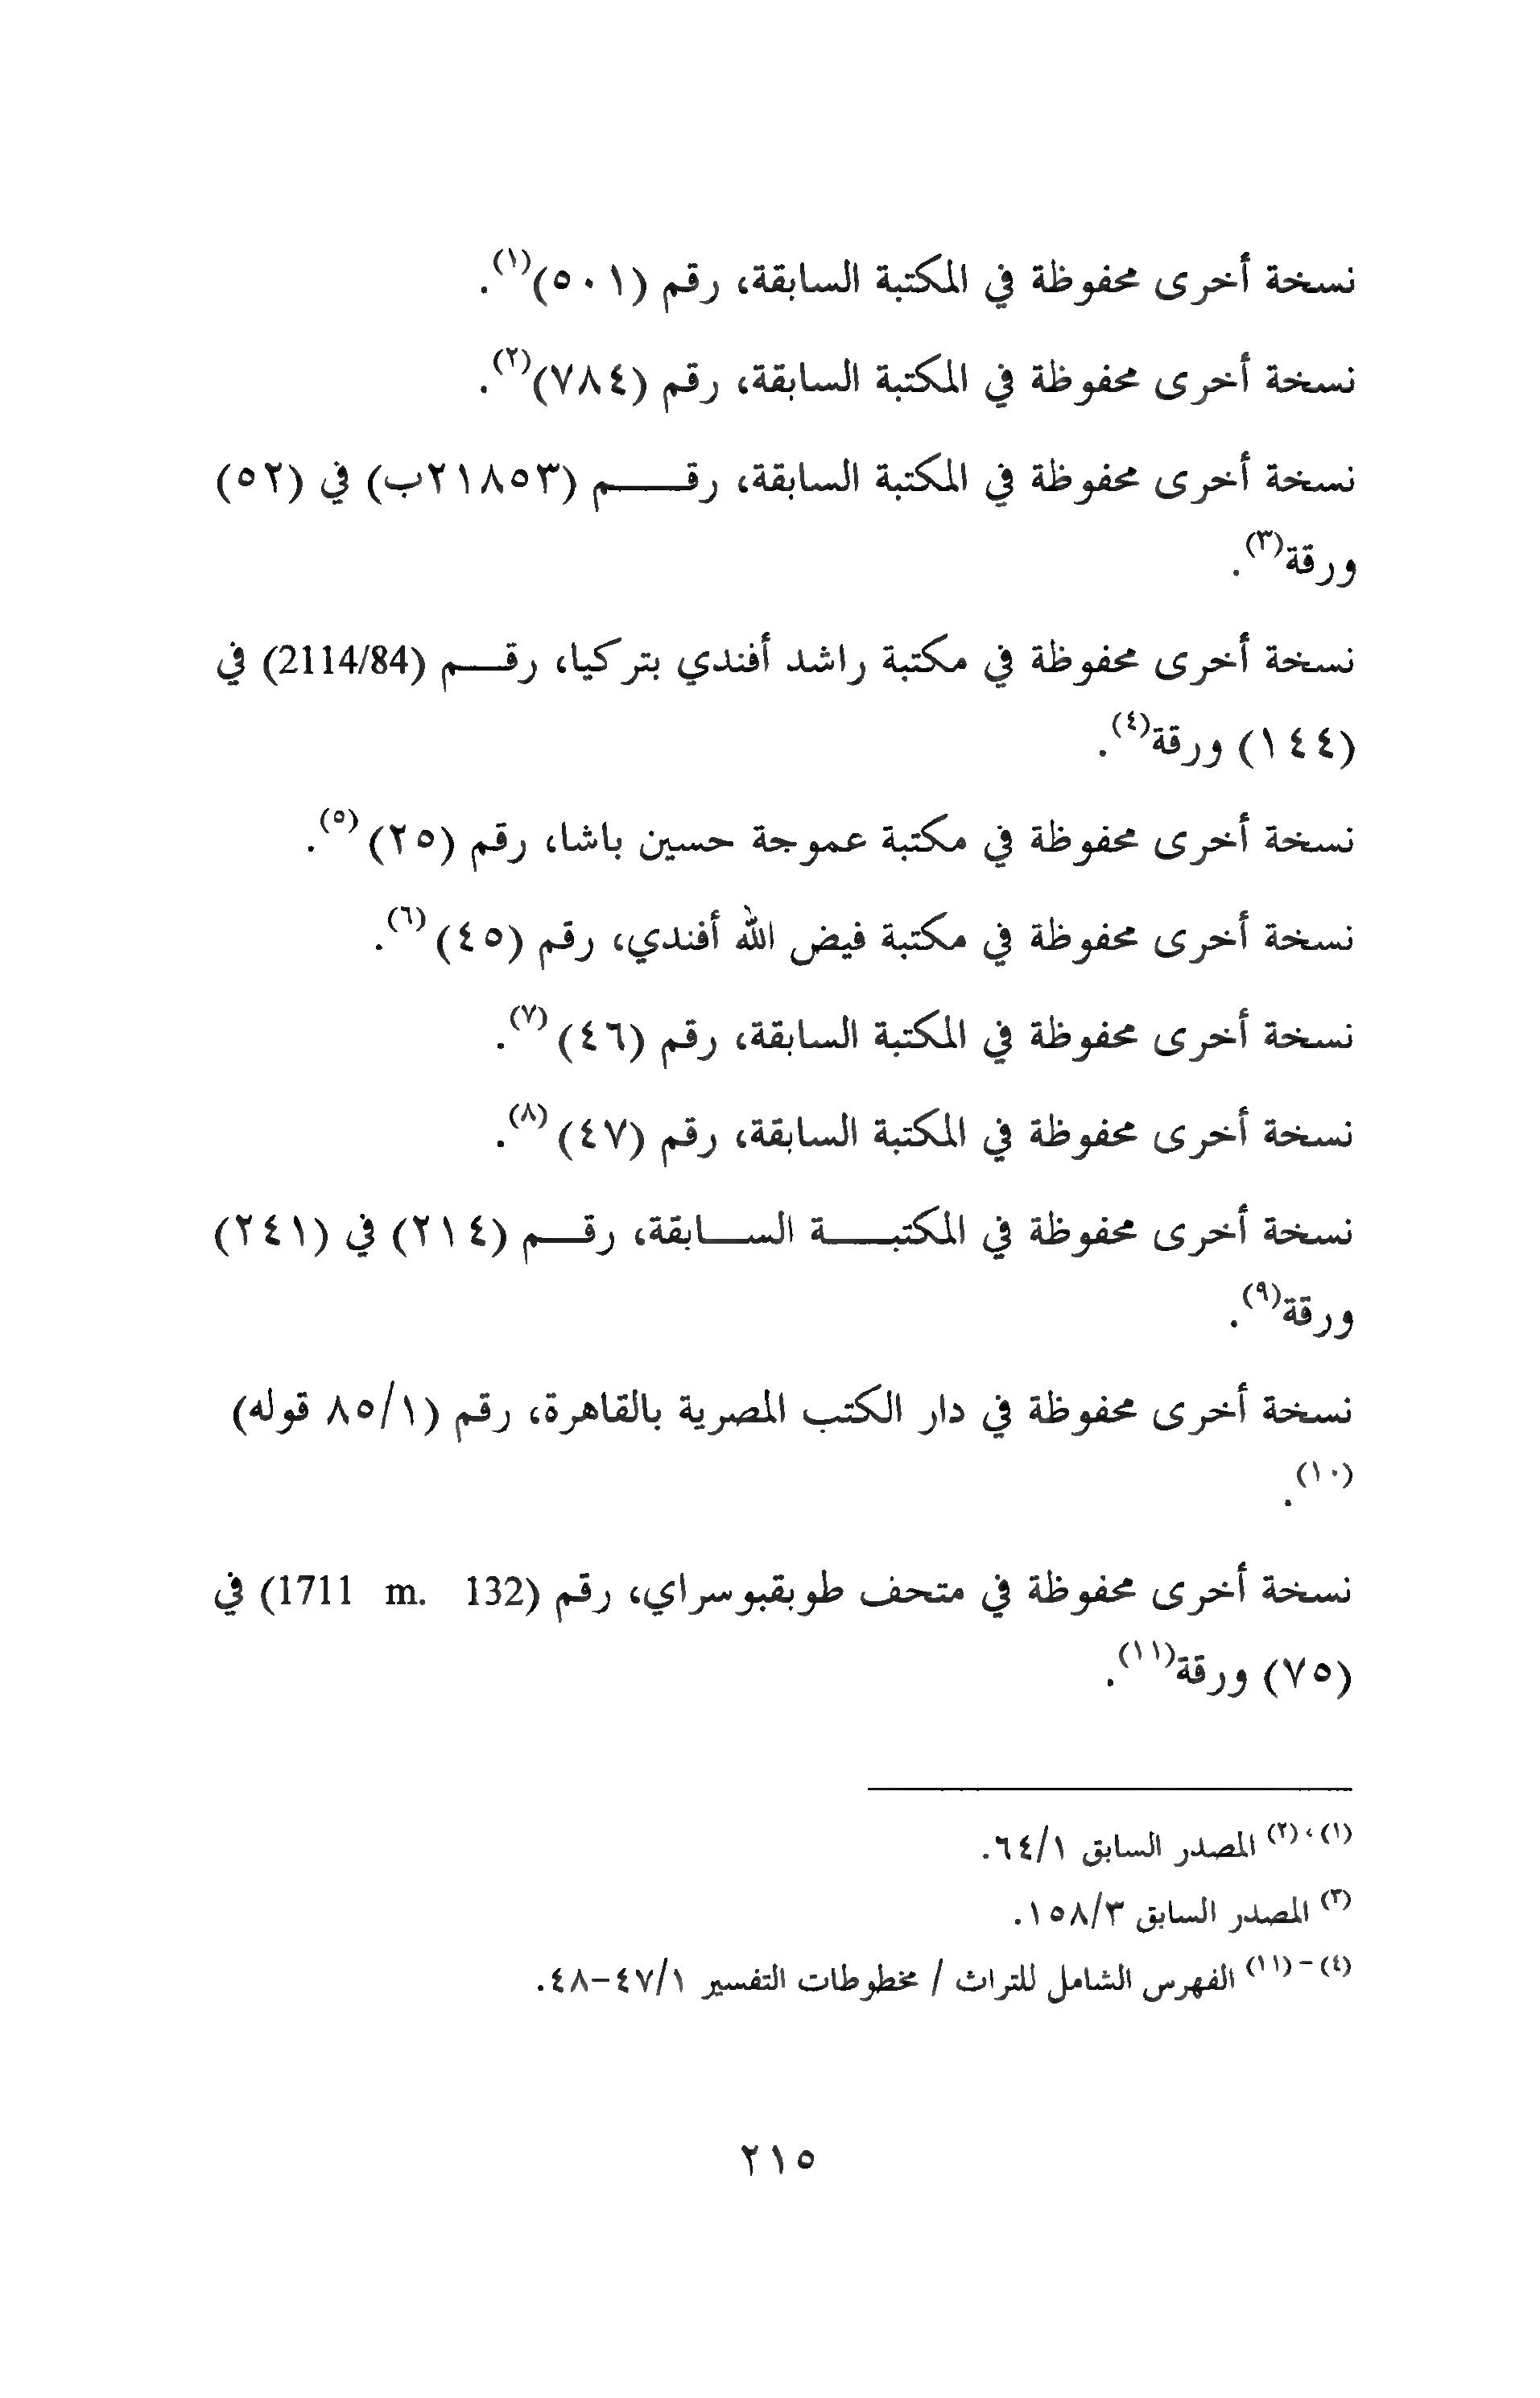 نسخة أخرى محفوظة في المكتبة السابقة، رقم (٥٠١)(١).
نسخة أخرى محفوظة في المكتبة السابقة، رقم (٧٨٤)(٢).
نسخة أخرى محفوظة في المكتبة السابقة، رقـــم (٢١٨٥٣ب) في (٥٢)
ورقة(٣).
نسخة أخرى محفوظة في مكتبة راشد أفندي بتركيا، رقـــم (2114/84) في
(١٤٤) ورقة(٤).
نسخة أخرى محفوظة في مكتبة عموجة حسين باشا، رقم (٢٥) (٥).
نسخة أخرى محفوظة في مكتبة فيض الله أفندي، رقم (٤٥) (٦).
نسخة أخرى محفوظة في المكتبة السابقة، رقم (٤٦) (٧).
نسخة أخرى محفوظة في المكتبة السابقة، رقم (٤٧) (٨).
نسخة أخرى محفوظة في المكتبـــة الســـابقة، رقـــم (٢١٤) في (٢٤١)
ورقة(٩).
نسخة أخرى محفوظة في دار الكتب المصرية بالقاهرة، رقم (٨٥/١ قوله)
(١٠).
نسخة أخرى محفوظة في متحف طوبقبوسراي، رقم (1711 m. 132) في
(٧٥) ورقة(١١).
(١)، (٢) المصدر السابق ٦٤/١.
(٣) المصدر السابق ١٥٨/٣.
(٤) - (١١) الفهرس الشامل للتراث / مخطوطات التفسير ٤٧/١-٤٨.
٢١٥